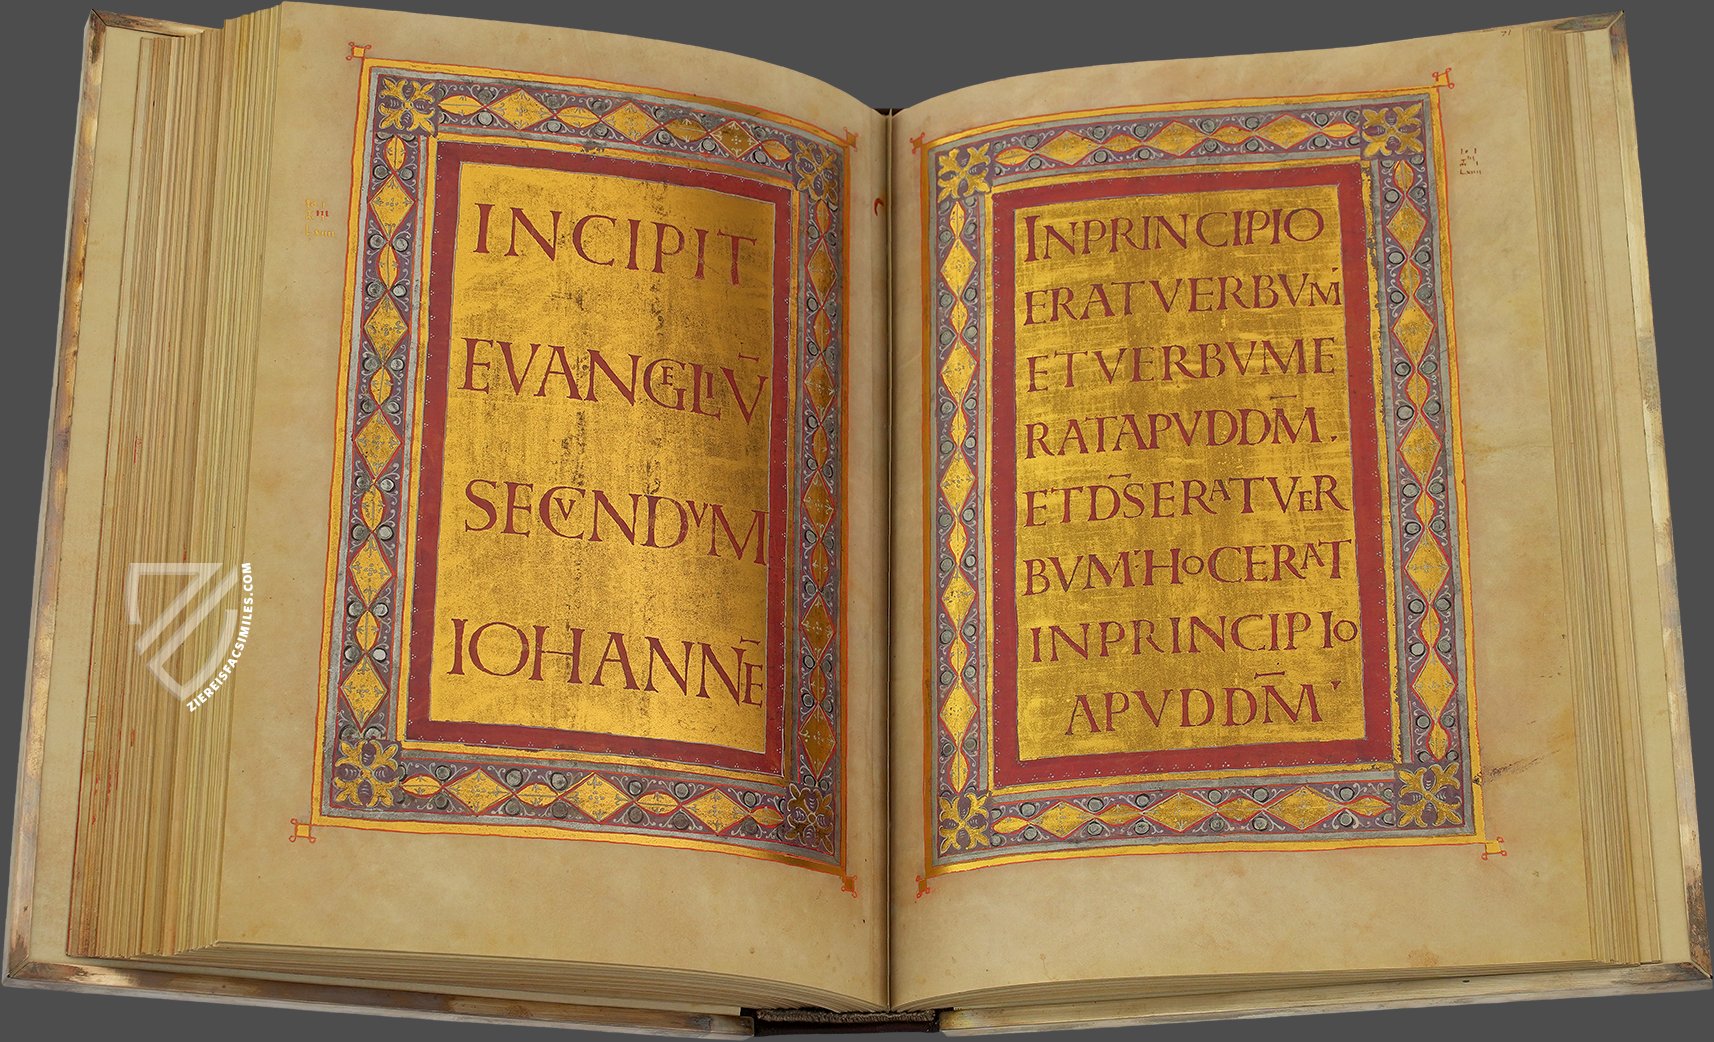 INCIPIT
EVANGELIV̄
SECVNDVM
IOHANNĒ
INPRINCIPIO
ERATVERBVM
ETVERBVME
RATAPVDDM̄.
ETDS̄ERATVER
BVM·HOCERAT
INPRINCIPIO
APVDDM̄
ZIEREISFACSIMILES.COM